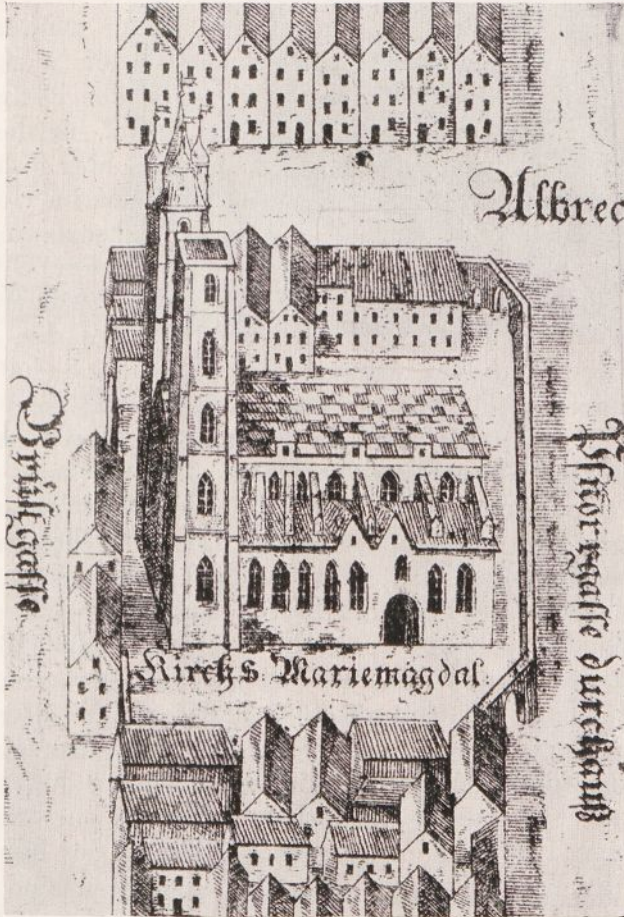 Albrec
Brüstgasse
Pfnorrgasse durchauß
Kirch S. Mariemagdal.